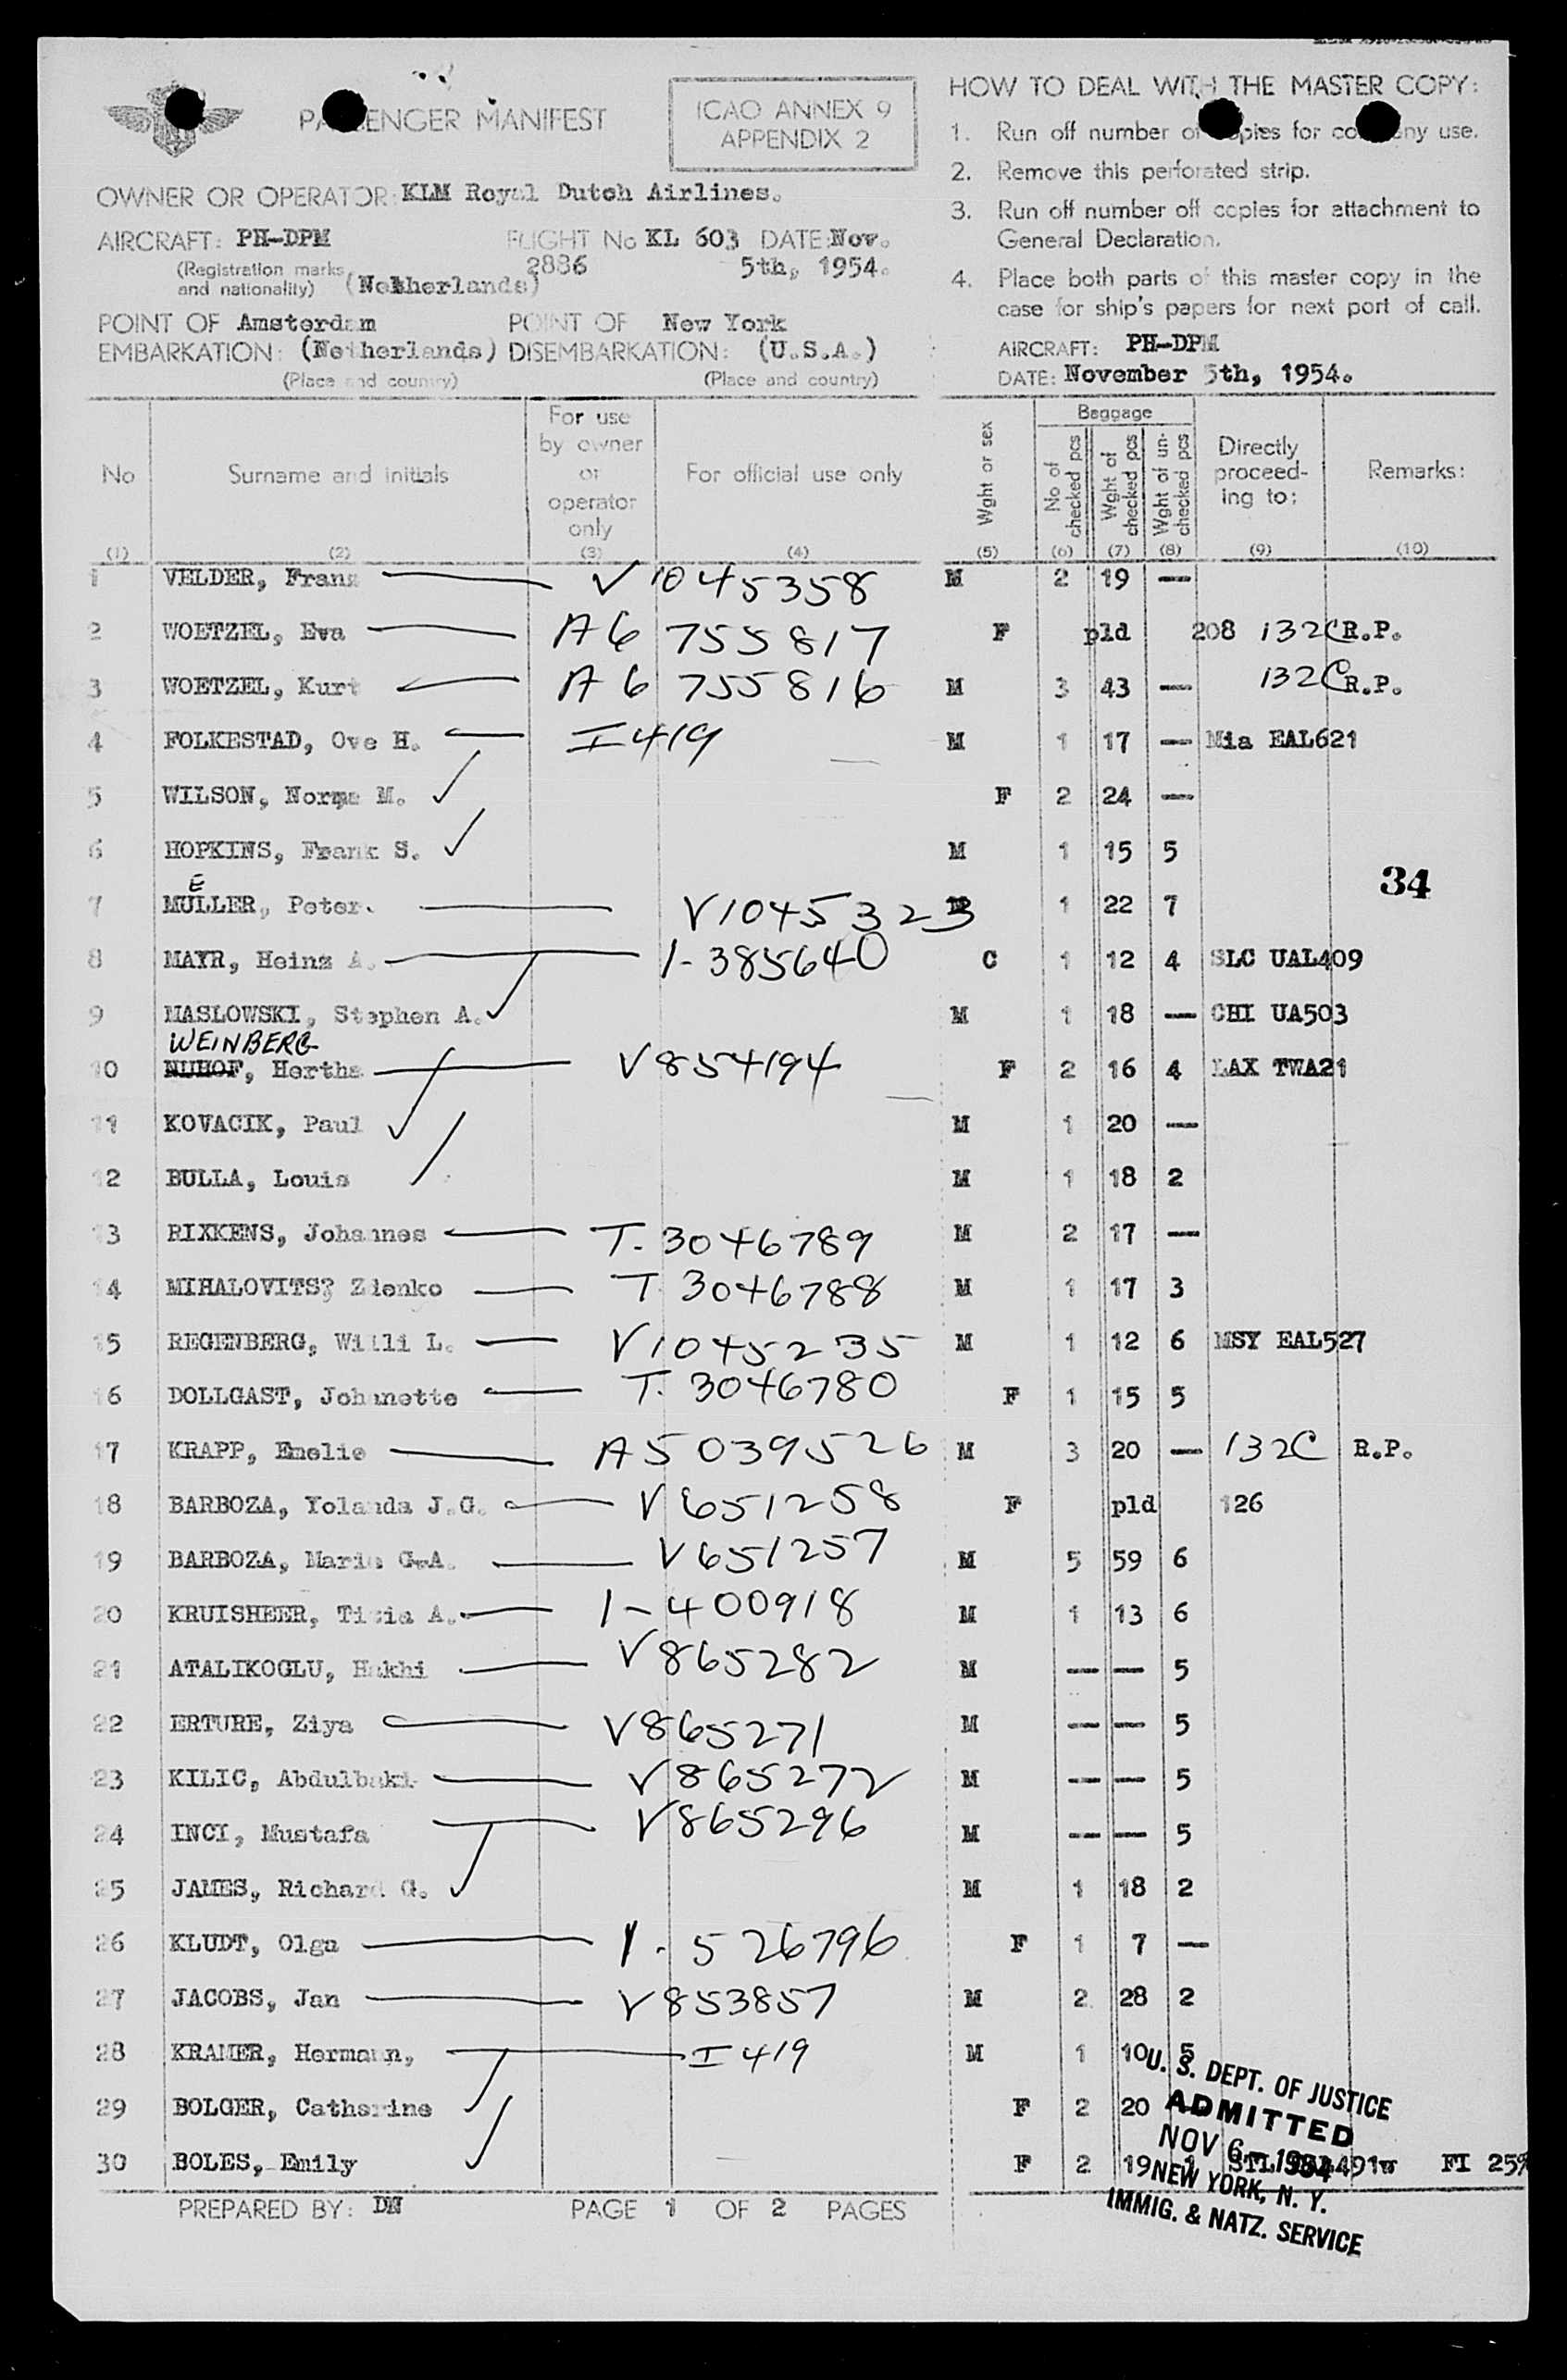 PASSENGER MANIFEST
ICAO ANNEX 9
APPENDIX 2
OWNER OR OPERATOR: KLM Royal Dutch Airlines.
AIRCRAFT: PH-DPM FLIGHT No KL 603 DATE: Nov.
(Registration marks and nationality) (Netherlands) 2886 5th, 1954.
POINT OF EMBARKATION: Amsterdam (Netherlands) POINT OF DISEMBARKATION: New York (U.S.A.)
(Place and country) (Place and country)
HOW TO DEAL WITH THE MASTER COPY:
1. Run off number of copies for company use.
2. Remove this perforated strip.
3. Run off number off copies for attachment to
General Declaration.
4. Place both parts of this master copy in the
case for ship's papers for next port of call.
AIRCRAFT: PH-DPM
DATE: November 5th, 1954.
No Surname and initials For use by owner or operator only For official use only Wght or sex Baggage No of checked pcs Wght of checked pcs Wght of un-checked pcs Directly proceed-ing to: Remarks:
(1) (2) (3) (4) (5) (6) (7) (8) (9) (10)
1 VELDER, Franz V 1045358 M 2 19 —
2 WOETZEL, Eva A6 755817 F pld 208 132C R.P.
3 WOETZEL, Kurt A6 755816 M 3 43 — 132C R.P.
4 FOLKESTAD, Ove H. I 419 M 1 17 — Mia EAL621
5 WILSON, Norma M. F 2 24 —
6 HOPKINS, Frank S. M 1 15 5
34
E
7 MULLER, Peter. V1045323 M 1 22 7
8 MAYR, Heinz A. 1-385640 C 1 12 4 SLC UAL409
9 MASLOWSKI, Stephen A. M 1 18 — CHI UA503
WEINBERG
10 NIJHOF, Hertha V854194 F 2 16 4 LAX TWA21
11 KOVACIK, Paul M 1 20 —
12 BULLA, Louis M 1 18 2
13 RIXKENS, Johannes T-3046789 M 2 17 —
14 MIHALOVITS? Zdenko T 3046788 M 1 17 3
15 REGENBERG, Willi L. V1045235 M 1 12 6 MSY EAL527
16 DOLLGAST, Johannette T. 3046780 F 1 15 5
17 KRAPP, Emelie A5 039526 M 3 20 — 132C R.P.
18 BARBOZA, Yolanda J.G. V651258 F pld 126
19 BARBOZA, Mario G.A. V651257 M 5 59 6
20 KRUISHEER, Ticia A. 1-400918 M 1 13 6
21 ATALIKOGLU, Hakhi V865282 M — — 5
22 ERTURE, Ziya V865271 M — — 5
23 KILIC, Abdulbaki V865272 M — — 5
24 INCI, Mustafa V865296 M — — 5
25 JAMES, Richard G. M 1 18 2
26 KLUDT, Olga 1-526796 F 1 7 —
27 JACOBS, Jan V853857 M 2 28 2
28 KRAMER, Hermann, I 419 M 1 10 5
29 BOLGER, Catherine F 2 20
30 BOLES, Emily F 2 19 1 FI 25%
U. S. DEPT. OF JUSTICE
ADMITTED
NOV 6 - 1954
NEW YORK, N. Y.
IMMIG. & NATZ. SERVICE
PREPARED BY: DW PAGE 1 OF 2 PAGES